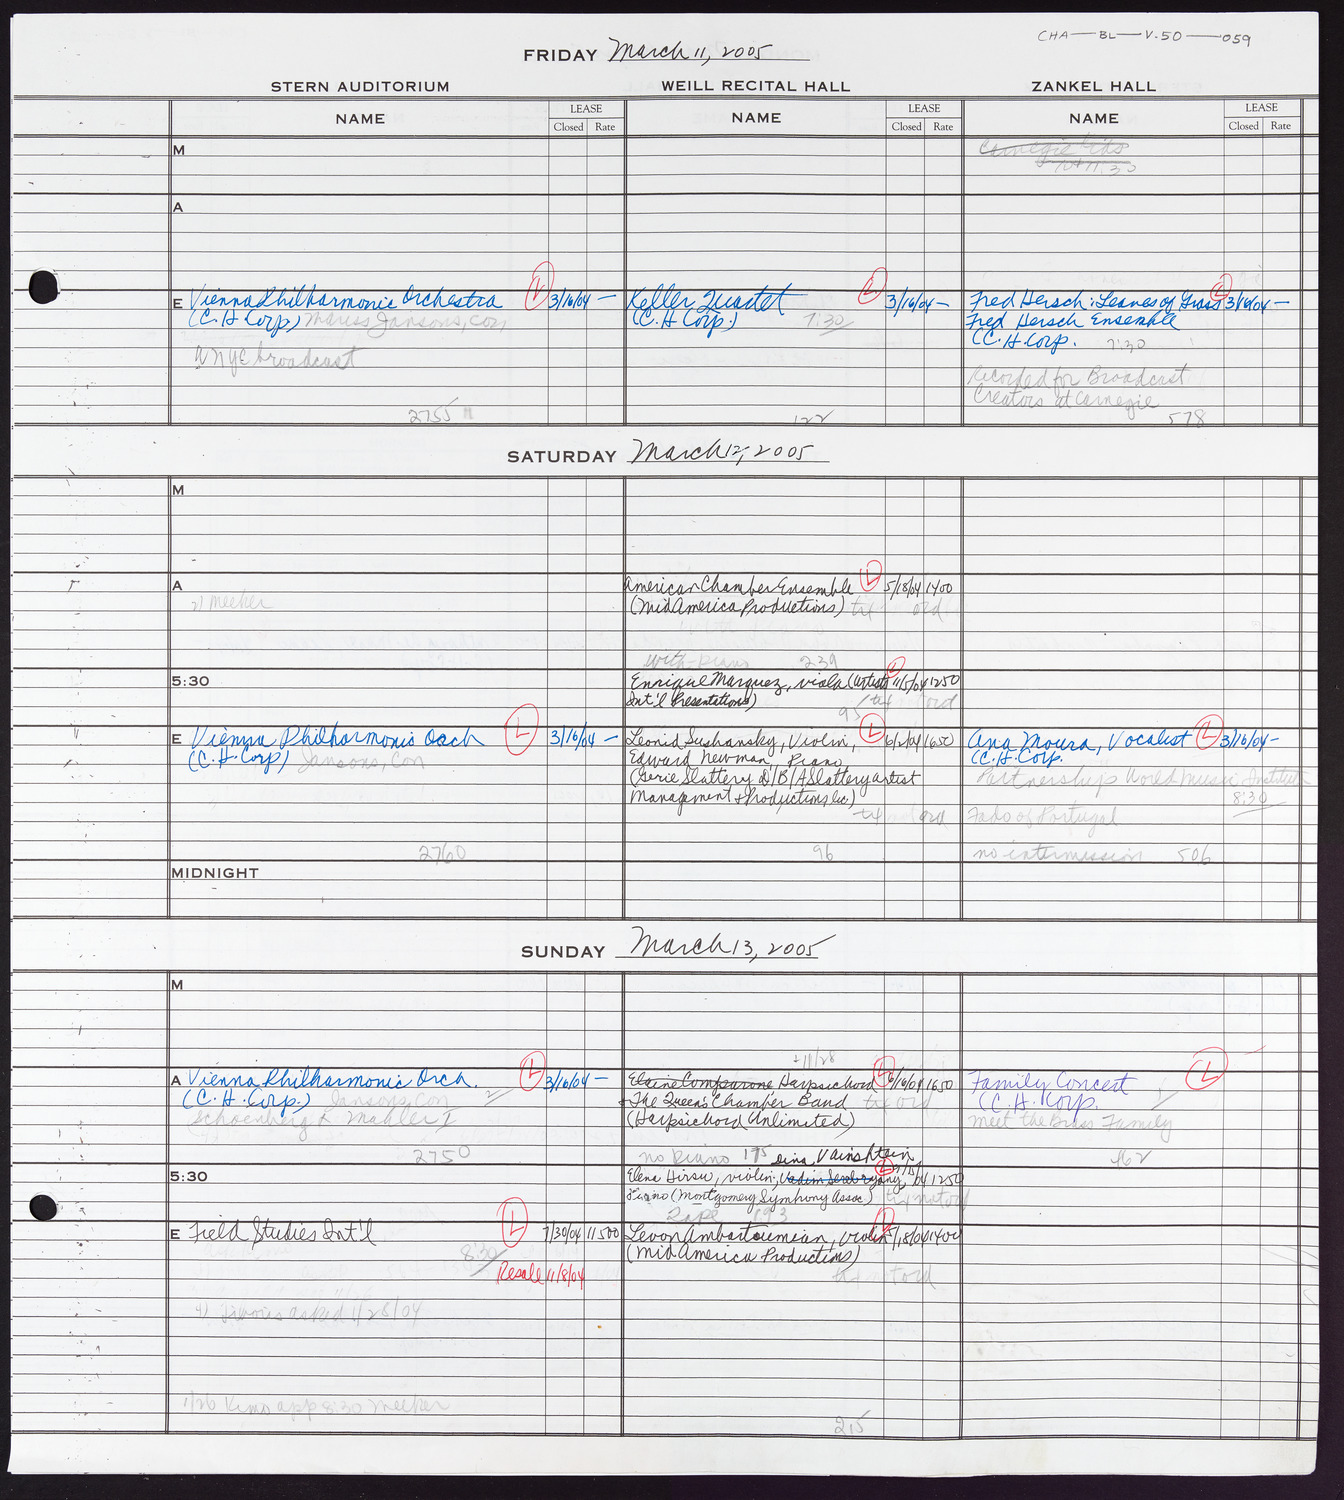 CHA—BL—V.50—059
FRIDAY March 11, 2005
STERN AUDITORIUM WEILL RECITAL HALL ZANKEL HALL
NAME LEASE Closed Rate NAME LEASE Closed Rate NAME LEASE Closed Rate
M
Carnegie Kids
10+11:30
A
E Vienna Philharmonic Orchestra L 3/16/04 —
(C.H Corp) Mariss Jansons, Con
WNYC broadcast
2755
Keller Quartet L 3/16/04 —
(C.H Corp.) 7:30
122
Fred Hersch: Leaves of Grass L 3/16/04 —
Fred Hersch Ensemble
(C.H.Corp. 7:30
Recorded for Broadcast
Creators at Carnegie
578
SATURDAY March 12, 2005
M
A
2) Meeker
American Chamber Ensemble L 5/18/04 1400
(MidAmerica Productions) txt ord
with piano 239
5:30
Enrique Marquez, viola (Artists L 11/5/04 1250
Int'l Presentations) ord
95
E Vienna Philharmonic Orch L 3/16/04 —
(C.H.Corp) Jansons, Con
2760
Leonid Sushansky, Violin, L 6/2/04 1650
Edward Newman, Piano
(Gerie Slattery D/B/A Slattery Artist
Management & Productions Inc.)
ord
96
Ana Moura, Vocalist L 3/16/04 —
(C.H.Corp.
Partnership World Music Institute
8:30
Fado of Portugal
no intermission 506
MIDNIGHT
SUNDAY March 13, 2005
M
A Vienna Philharmonic Orch. L 3/16/04 —
(C.H.Corp.) Jansons, Con 2
Schoenberg & Mahler I
2750
+11/28
Elaine Comparone, Harpsichord L 6/16/04 1650
+The Queen's Chamber Band ord
(Harpsichord Unlimited)
no piano 175
Family Concert L
(C.H.Korp.
meet the Brass Family
462
5:30
Dina Vainshtein
Elena Hirsu, violin, Vadim Serebryany, L 04 1250
Piano (Montgomery Symphony Assoc.)
193
E Field Studies Int'l L 7/30/04 11500
8:30
Resale 11/8/04
4) asked 1/28/04
1/26 Kims app 8:30 Meeker
Levon Ambartsumian, violin L 5/18/04 1400
(MidAmerica Productions)
ord
215